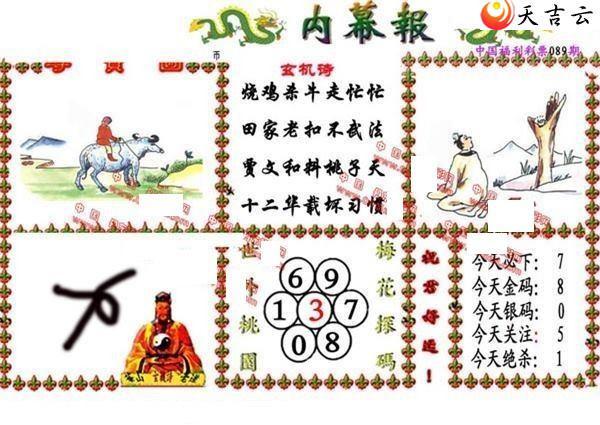 天吉云
内幕報
中国福利彩票089期
币
玄机诗
烧鸡杀牛走忙忙
田家老扣不武法
贾文和料桃子天
十二华载坏习惯
世外桃園
69
137
08
梅花探碼
祝君好运！
今天必下：7
今天金码：8
今天银码：0
今天关注：5
今天绝杀：1